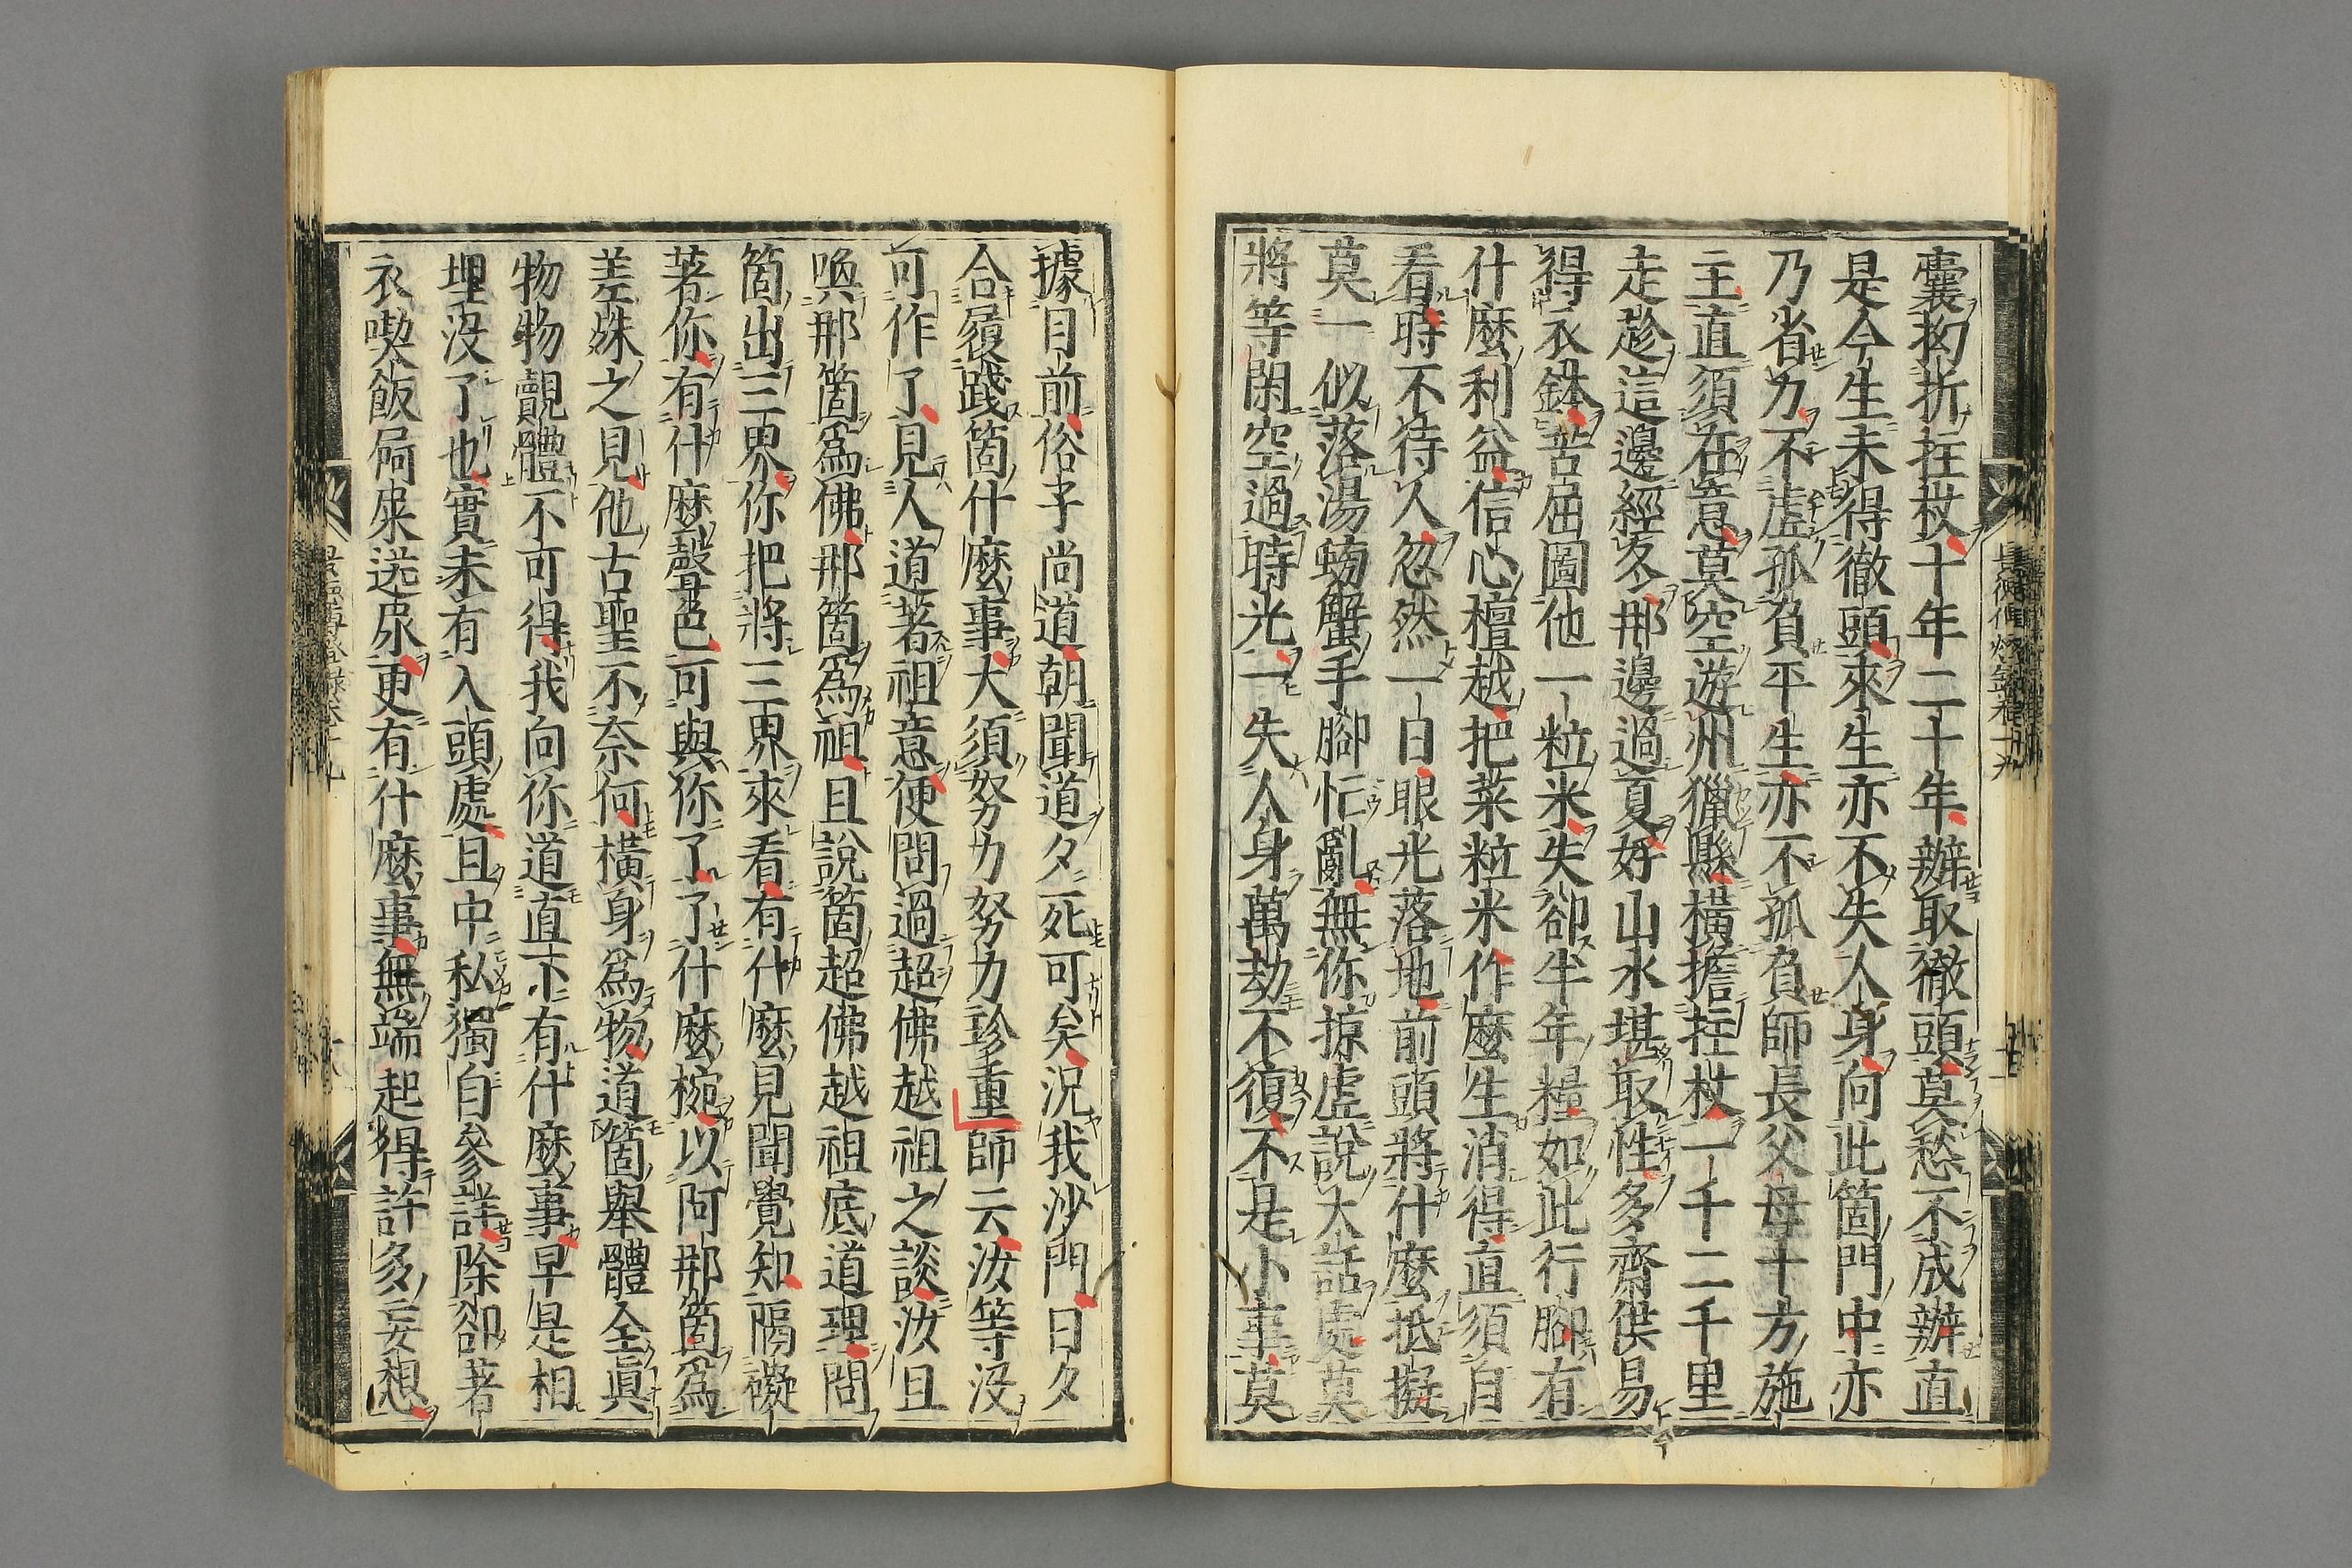 囊拗折拄杖十年二十年辦取徹頭莫愁不成辦直
是今生未得徹頭來生亦不失人身向此箇門中亦
乃省力不虛孤負平生亦不孤負師長父母十方施
主直須在意莫空遊州獵縣橫擔拄杖一千二千里
走趁這邊經冬那邊過夏好山水堪取性多齋供易
得衣鉢苦屈圖他一粒米失卻半年糧如此行腳有
什麼利益信心檀越把菜粒米作麼生消得直須自
看時不待人忽然一日眼光落地前頭將什麼抵擬
莫一似落湯螃蟹手腳忙亂無你掠虛說大話處莫
將等閑空過時光一失人身萬劫不復不是小事莫
據目前俗子尚道朝聞道夕死可矣況我沙門日夕
合履踐箇什麼事大須努力努力珍重師云汝等没
可作了見人道著祖意便問過超佛越祖之談汝且
喚那箇為佛那箇為祖且說箇超佛越祖底道理問
箇出三界你把將三界來看有什麼見聞覺知隔礙
著你有什麼聲色可與你了了什麼椀以阿那箇為
差殊之見他古聖不奈何橫身為物道箇舉體全眞
物物覿體不可得我向你道直下有什麼事早是相
埋没了也實未有入頭處且中私獨自參詳除卻著
衣喫飯屙屎送尿更有什麼事無端起得許多妄想